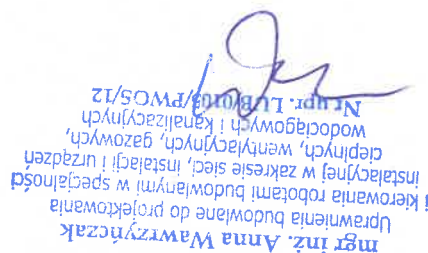 mgr inż. Anna Wawrzyńczak
Uprawnienia budowlane do projektowania
i kierowania robotami budowlanymi w specjalności
instalacyjnej w zakresie sieci, instalacji i urządzeń
cieplnych, wentylacyjnych, gazowych,
wodociągowych i kanalizacyjnych
Nr upr. LUB/0103/PWOS/12